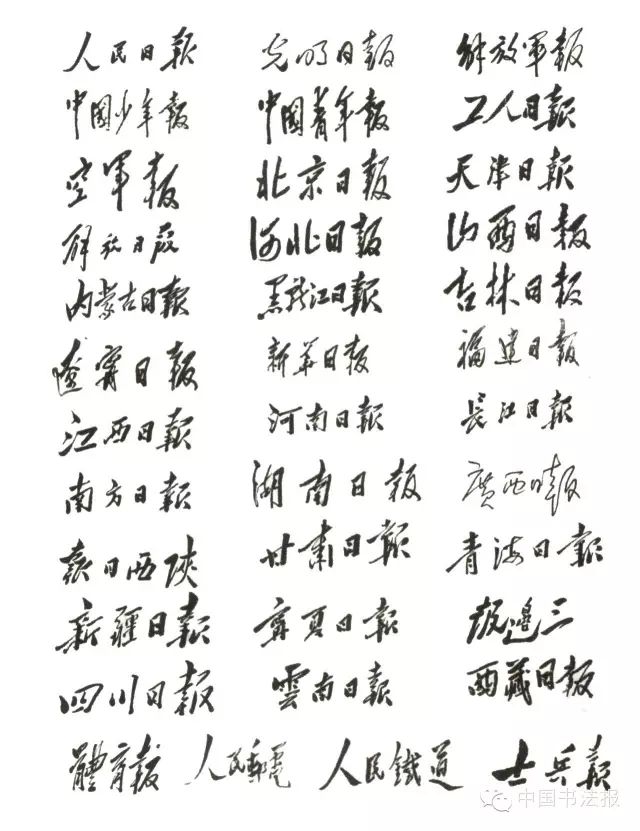 人民日報 光明日報 解放軍報
中國少年報 中國青年報 工人日報
空軍報 北京日報 天津日報
解放日報 河北日報 山西日報
内蒙古日報 黑龍江日報 吉林日報
遼寧日報 新華日報 福建日報
江西日報 河南日報 長江日報
南方日報 湖南日報 廣西日報
報日西陝 甘肅日報 青海日報
新疆日報 寧夏日報 報邊三
四川日報 雲南日報 西藏日報
體育報 人民郵電 人民鐵道 士兵報
中国书法报